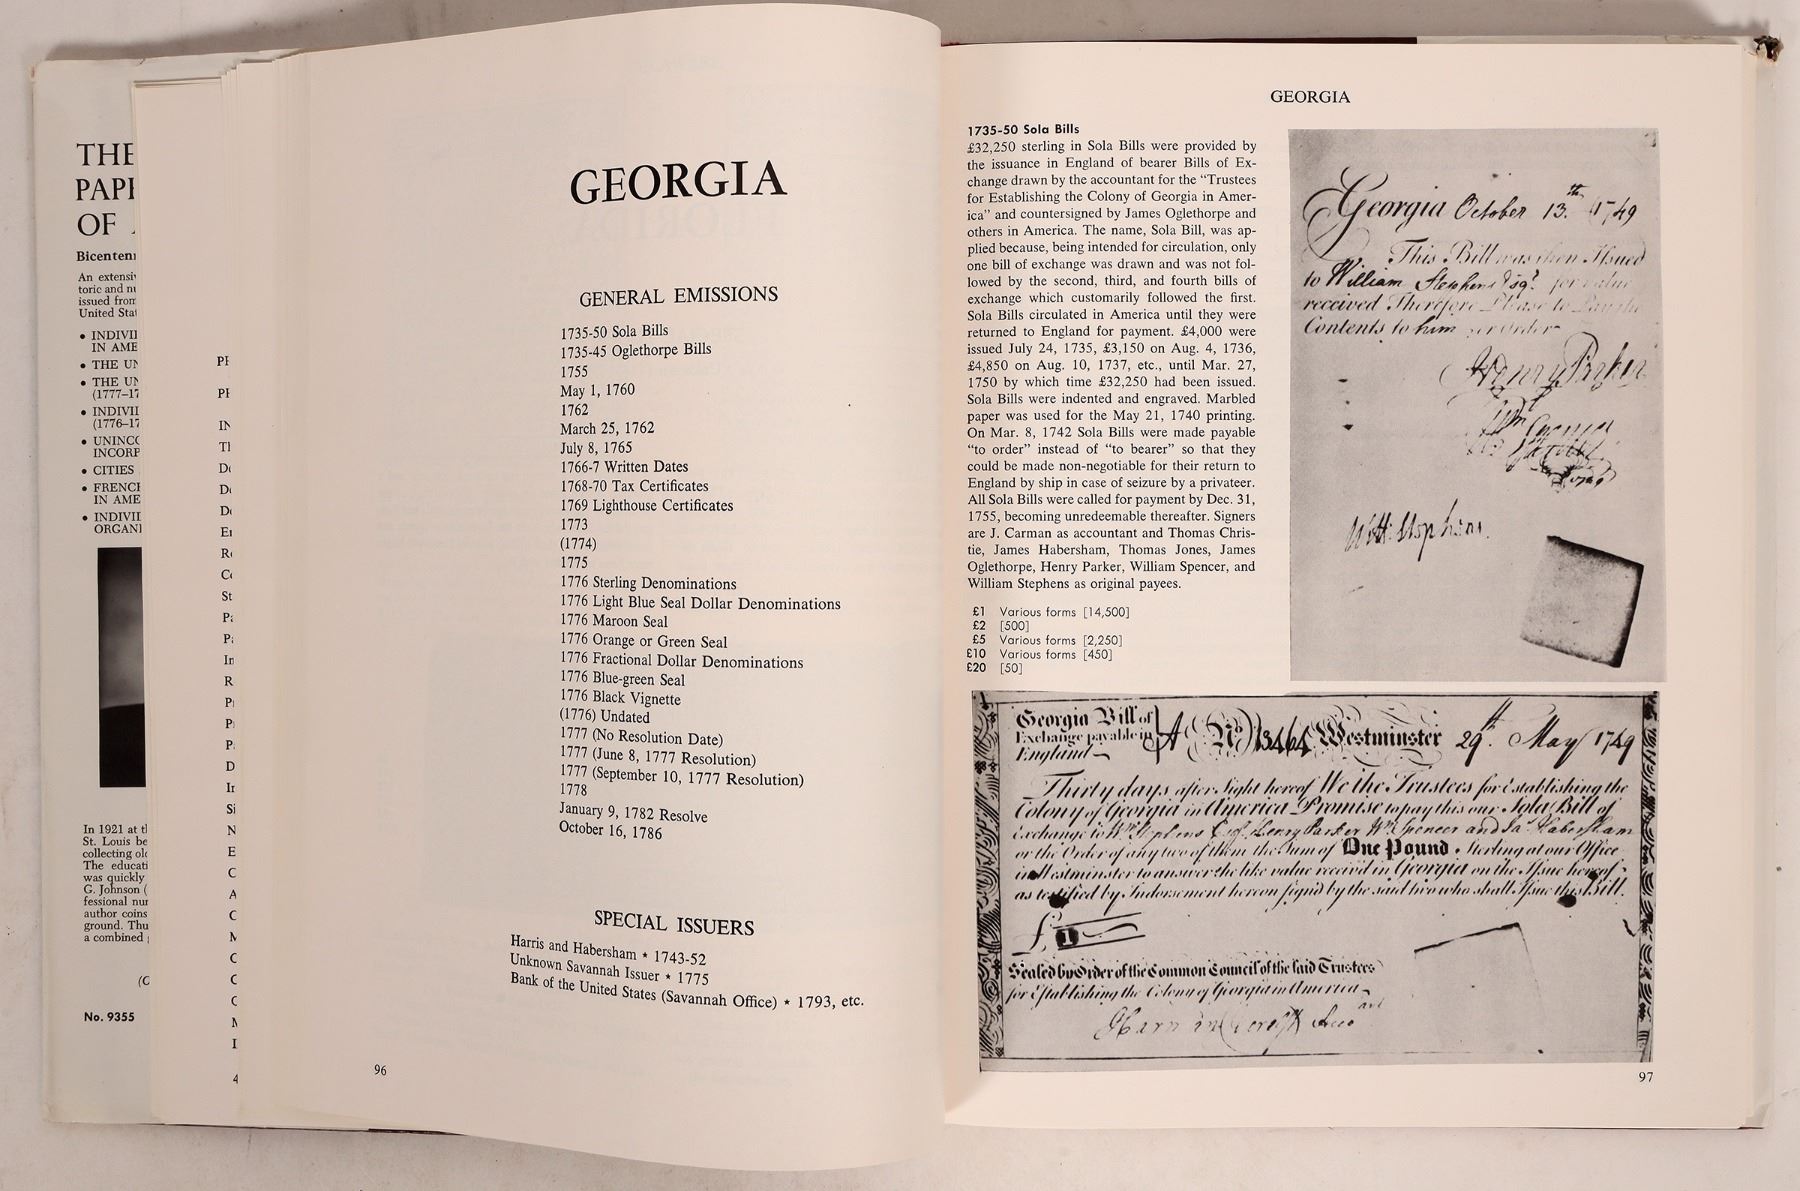 THE
PAP
OF
Bicenten
An extensi
toric and nu
issued from
United Stat
• INDIVI
IN AME
• THE UN
• THE UN
(1777-17
• INDIVI
(1776-17
• UNINCO
INCORP
• CITIES
• FRENCH
IN AME
• INDIVI
ORGANI
In 1921 at t
St. Louis be
collecting old
The educati
was quickly
G. Johnson (
fessional nu
author coins
ground. Thu
a combined
No. 9355
GEORGIA
GENERAL EMISSIONS
1735-50 Sola Bills
1735-45 Oglethorpe Bills
1755
May 1, 1760
1762
March 25, 1762
July 8, 1765
1766-7 Written Dates
1768-70 Tax Certificates
1769 Lighthouse Certificates
1773
(1774)
1775
1776 Sterling Denominations
1776 Light Blue Seal Dollar Denominations
1776 Maroon Seal
1776 Orange or Green Seal
1776 Fractional Dollar Denominations
1776 Blue-green Seal
1776 Black Vignette
(1776) Undated
1777 (No Resolution Date)
1777 (June 8, 1777 Resolution)
1777 (September 10, 1777 Resolution)
1778
January 9, 1782 Resolve
October 16, 1786
SPECIAL ISSUERS
Harris and Habersham ⋆ 1743-52
Unknown Savannah Issuer ⋆ 1775
Bank of the United States (Savannah Office) ⋆ 1793, etc.
96
GEORGIA
1735-50 Sola Bills
£32,250 sterling in Sola Bills were provided by
the issuance in England of bearer Bills of Ex-
change drawn by the accountant for the "Trustees
for Establishing the Colony of Georgia in Amer-
ica" and countersigned by James Oglethorpe and
others in America. The name, Sola Bill, was ap-
plied because, being intended for circulation, only
one bill of exchange was drawn and was not fol-
lowed by the second, third, and fourth bills of
exchange which customarily followed the first.
Sola Bills circulated in America until they were
returned to England for payment. £4,000 were
issued July 24, 1735, £3,150 on Aug. 4, 1736,
£4,850 on Aug. 10, 1737, etc., until Mar. 27,
1750 by which time £32,250 had been issued.
Sola Bills were indented and engraved. Marbled
paper was used for the May 21, 1740 printing.
On Mar. 8, 1742 Sola Bills were made payable
"to order" instead of "to bearer" so that they
could be made non-negotiable for their return to
England by ship in case of seizure by a privateer.
All Sola Bills were called for payment by Dec. 31,
1755, becoming unredeemable thereafter. Signers
are J. Carman as accountant and Thomas Chris-
tie, James Habersham, Thomas Jones, James
Oglethorpe, Henry Parker, William Spencer, and
William Stephens as original payees.
£1 Various forms [14,500]
£2 [500]
£5 Various forms [2,250]
£10 Various forms [450]
£20 [50]
Georgia October 13.th 1749
This Bill was then Issued
to William Stephens Esqr. for value
received Therefore Please to Pay the
Contents to him or order
Henry Parker
Wm. Stephens.
Georgia Bill of
Exchange payable in
England
A No. 13464 Westminster 29th. May 1749
Thirty days after Sight hereof We the Trustees for Establishing the
Colony of Georgia in America Promise to pay this our Sola Bill of
Exchange to Wm. Stephens Esqr. Henry Parker Wm. Spencer and Ja. Habersham
or the Order of any two of them the Sum of One Pound Sterling at our Office
in Westminster to answer the like value receiv'd in Georgia on the Issue hereof
as testified by Indorsement hereon sign'd by the said two who shall Issue this Bill.
£ 1
Sealed by Order of the Common Council of the said Trustees
for Establishing the Colony of Georgia in America
97